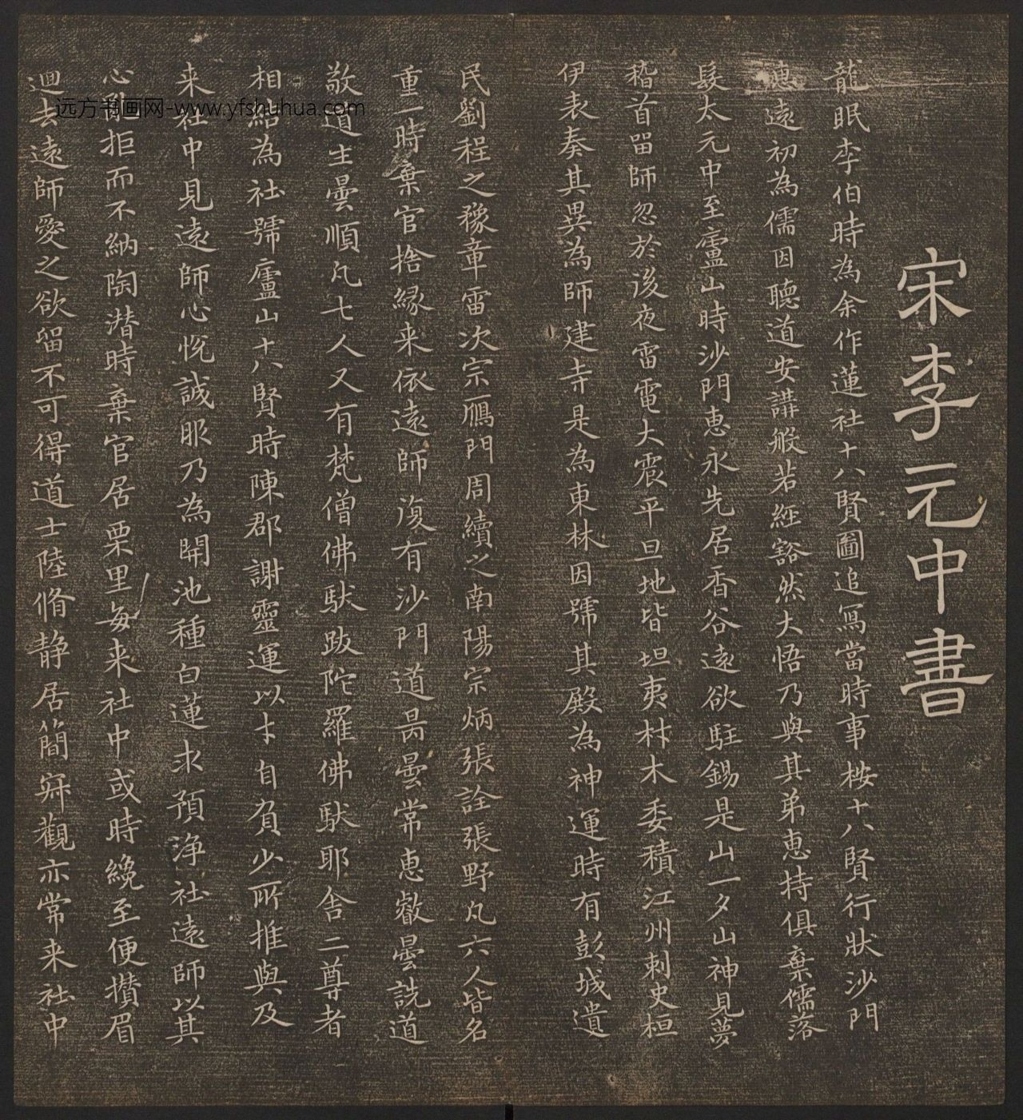 宋李元中書
龍眠李伯時為余作蓮社十八賢圖追寫當時事桉十八賢行狀沙門
惠遠初為儒因聽道安講般若經豁然大悟乃與其弟惠持俱棄儒落
髮太元中至廬山時沙門惠永先居香谷遠欲駐錫是山一夕山神見夢
稽首留師忽於後夜雷電大震平旦地皆坦夷材木委積江州刺史桓
伊表奏其異為師建寺是為東林因號其殿為神運時有彭城遺
民劉程之豫章雷次宗鴈門周續之南陽宗炳張詮張野凡六人皆名
重一時棄官捨緣来依遠師復有沙門道昺曇常惠叡曇詵道
敬道生曇順凡七人又有梵僧佛馱跋陀羅佛馱耶舍二尊者
相結為社號廬山十八賢時陳郡謝靈運以才自負少所推與及
来社中見遠師心悦誠服乃為開池種白蓮求預淨社遠師以其
心亂拒而不納陶潛時棄官居栗里每来社中或時纔至便攢眉
迴去遠師愛之欲留不可得道士陸脩静居簡寂觀亦常来社中
远方书画网-www.yfshuhua.com